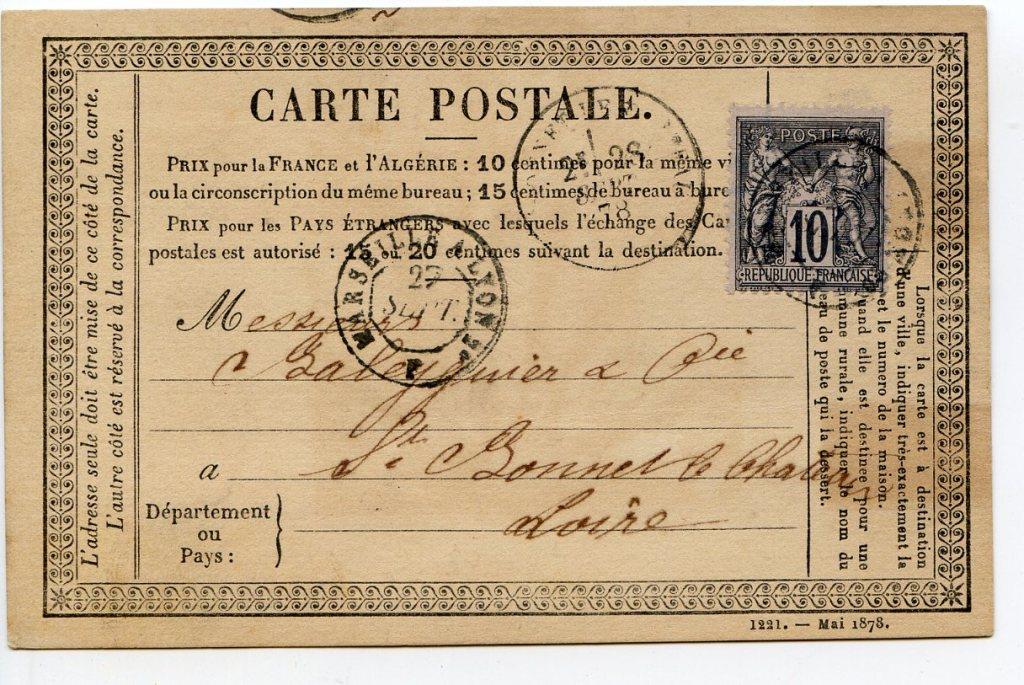 CARTE POSTALE.
PRIX pour la FRANCE et l'ALGÉRIE : 10 centimes pour la même vi
ou la circonscription du même bureau ; 15 centimes de bureau à bure
PRIX pour les PAYS ÉTRANGERS avec lesquels l'échange des Ca
postales est autorisé : 15 ou 20 centimes suivant la destination.
L'adresse seule doit être mise de ce côté de la carte.
L'autre côté est réservé à la correspondance.
POSTE
10
REPUBLIQUE FRANÇAISE
28
SEPT
78
MARSEILLE A LYON
27
SEPT.
Messieurs
& Cie
a St Bonnet le
Loire
Département
ou
Pays :
Lorsque la carte est à destination
d'une ville, indiquer très-exactement la
et le numero de la maison.
Quand elle est destinée pour une
mmune rurale, indiquer le nom du
eau de poste qui la dessert.
1221. — Mai 1878.